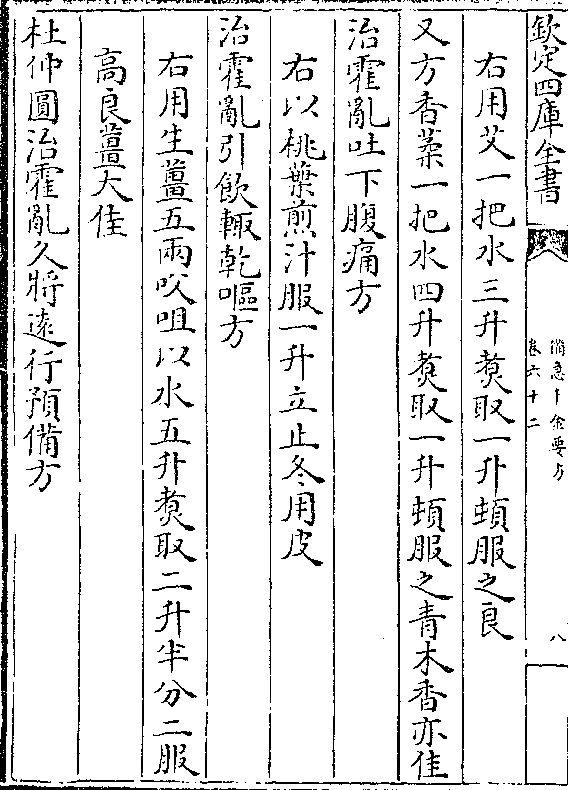 欽定四庫全書
備急千金要方
卷六十二
八
右用艾一把水三升煑取一升頓服之良
又方香葇一把水四升煑取一升頓服之青木香亦佳
治霍亂吐下腹痛方
右以桃葉煎汁服一升立止冬用皮
治霍亂引飲輙乾嘔方
右用生薑五兩㕮咀以水五升煑取二升半分二服
高良薑大佳
杜仲圓治霍亂久將遠行預備方